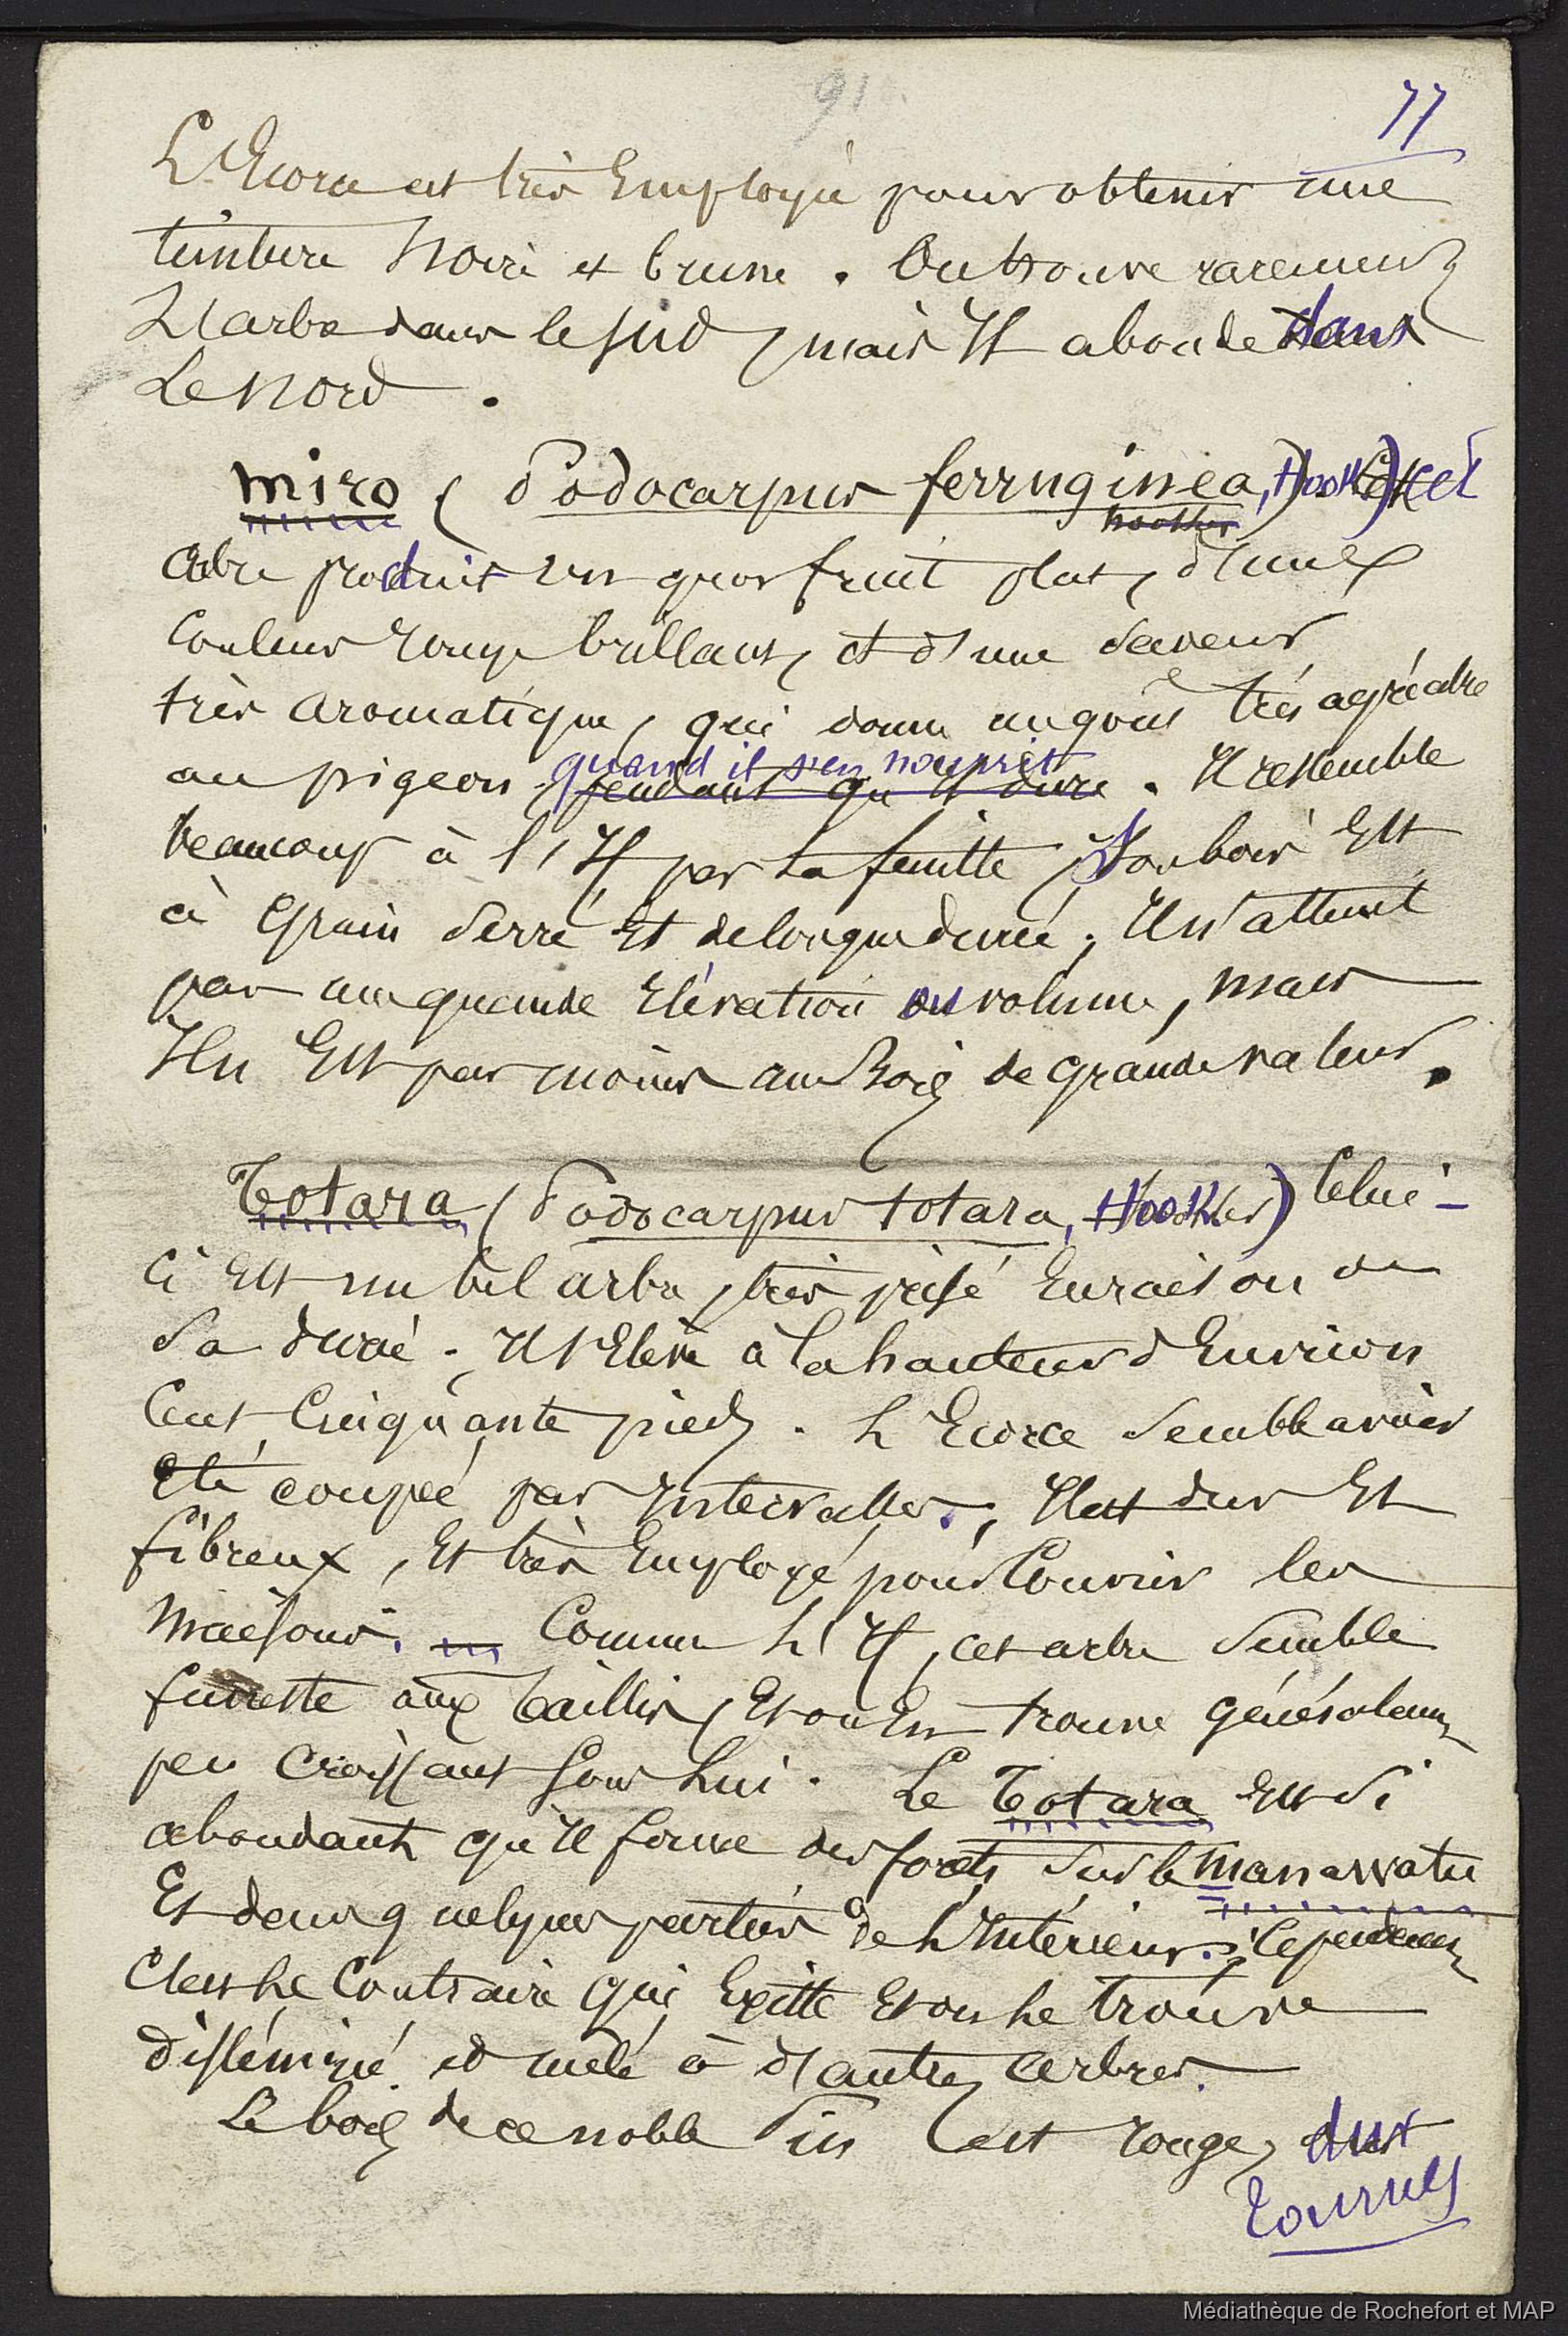 91
77
L'Ecorce est très Employé pour obtenir une
teinture Noire et brune. On trouve rarement
L'arbre dans le sud, mais Il abonde dans
Le nord.
miro (Podocarpus ferruginea, Hook) Cet
hooker
arbre produit un gros fruit plat, d'une
Couleur rouge brillant, et d'une saveur
très aromatique, qui donne un goût très agréable
au pigeon quand il s'en nourrit
pendant qu'Il dure. Il ressemble
beaucoup à l'If par La feuille, Son bois Est
à Grain Serré Et de longue durée; Il n'atteint
pas une grande Elévation ou volume, mais
Il n'Est pas moins un Bois de grande valeur.
Totara (Podocarpus totara, Hooker) Celui-
Ci Est un bel arbre, très prisé En raison de
Sa durée. Il s'Elève à la hauteur d'Environ
Cent Cinquante pieds. L'Ecorce Semble avoir
Eté coupée par Intervalles; Il est dur Et
fibreux, Et très Employé pour Couvrir les
Maisons. Comme L'If, cet arbre Semble
funeste aux taillis, Et on En trouve généralement
peu Croissant Sous Lui. Le Totara Est Si
abondant qu'Il forme des forêts Sur le Manawatu
Et dans quelques parties de L'Intérieur; Cependant
C'est Le Contraire qui Existe Et on Le trouve
disséminé et mêlé à d'autres arbres.
Le bois de ce noble Pin est rouge, dur
tournez
Médiathèque de Rochefort et MAP